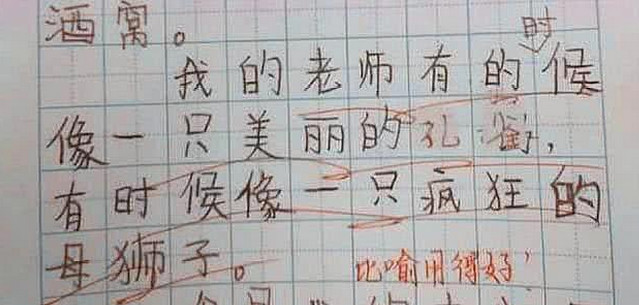 酒窝。
我的老师有的时候
像一只美丽的孔雀，
有时候像一只疯狂的
母狮子。
比喻用得好！